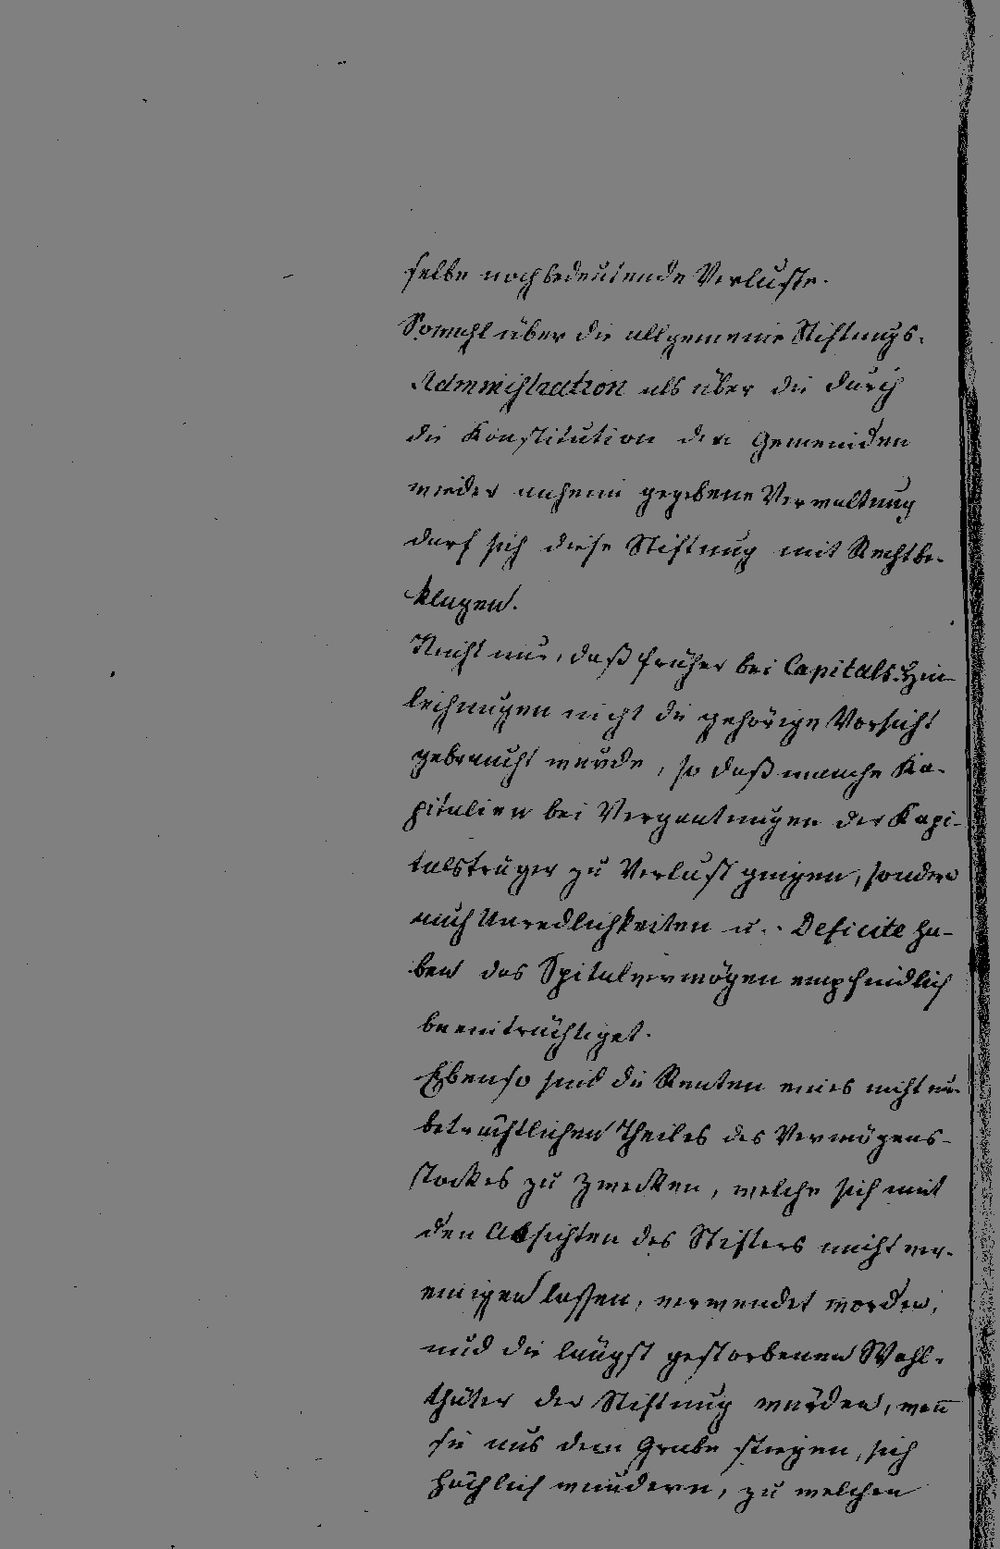 selbe noch bedeutende Verluste.
Sowohl über die allgemeine Stiftungs-
Administration als über die durch
die Konstitution den Gemeinden
wieder anheim gegebene Verwaltung
darf sich diese Stiftung mit Recht be-
klagen.
Nicht nur, daß früher bei Capitals-Hin-
leihungen nicht die gehörige Vorsicht
gebraucht wurde, so daß manche Ka-
pitalien bei Vergantungen der Kapi-
talsträger zu Verlust gingen, sondern
auch Unredlichkeiten u. Deficite ha-
ben das Spitalvermögen empfindlich
beeinträchtiget.
Ebenso sind die Renten eines nicht un-
beträchtlichen Theiles des Vermögens-
stockes zu Zwecken, welche sich mit
den Absichten des Stifters nicht ver-
einigen lassen, verwendet worden,
und die längst gestorbenen Wohl-
thäter der Stiftung würden, wen̅
sie aus dem Grabe stiegen, sich
höchlich wundern, zu welchen